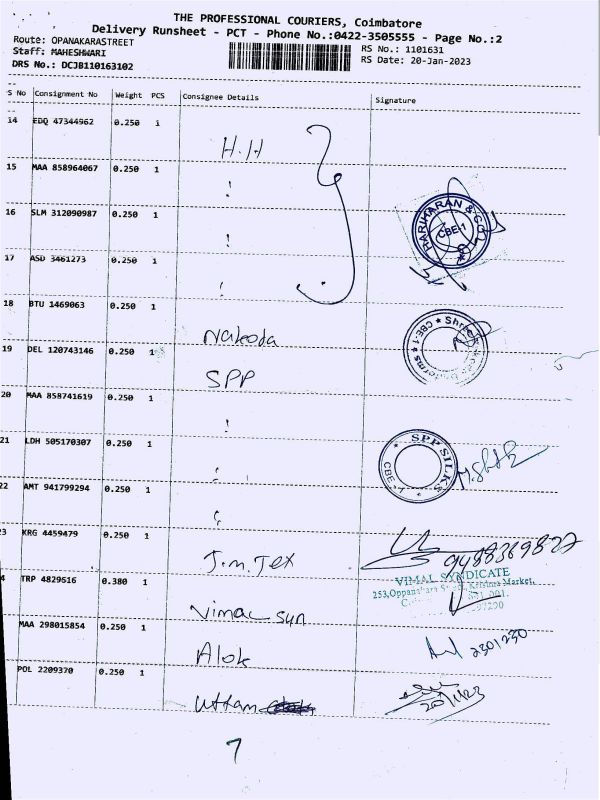 THE PROFESSIONAL COURIERS, Coimbatore
Delivery Runsheet - PCT - Phone No.:0422-3505555 - Page No.:2
Route: OPANAKARASTREET
RS No.: 1101631
Staff: MAHESHWARI
RS Date: 20-Jan-2023
DRS No.: DCJB110163102
S No Consignment No Weight PCS Consignee Details Signature
14 EDQ 47344962 0.250 1 H.H
15 MAA 858964067 0.250 1
16 SLM 312090987 0.250 1
HARIHARAN & CO. CBE-1
17 ASD 3461273 0.250 1
18 BTU 1469063 0.250 1 Nakoda
CBE-1
19 DEL 120743146 0.250 1 SPP
20 MAA 858741619 0.250 1
SPP SILKS CBE-1
21 LDH 505170307 0.250 1
22 AMT 941799294 0.250 1
23 KRG 4459479 0.250 1 J.m.Tex
9488369827
VIMAL SYNDICATE
253,Oppanakara Street, Krishna Market,
641 001.
97290
4 TRP 4829616 0.380 1 Vimal sun
MAA 298015854 0.250 1 Alok 2301230
POL 2209370 0.250 1 Uttam 20/1/23
7